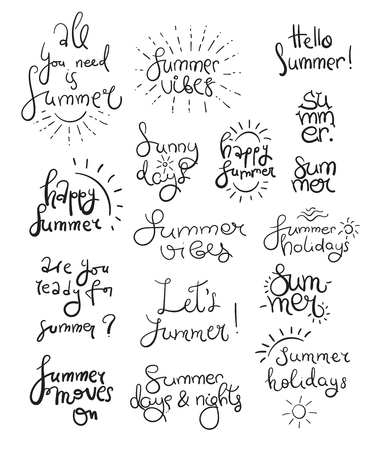 all
you need
is
Summer
Summer
vibes
Hello
Summer!
Su
mm
er.
Sunny
days
happy
Summer
Sum
mer
happy
Summer
Summer
vibes
Summer
holidays
are you
ready for
summer?
Let's
Summer!
Sum-
mer
Summer
holidays
Summer
moves
on
Summer
days & nights